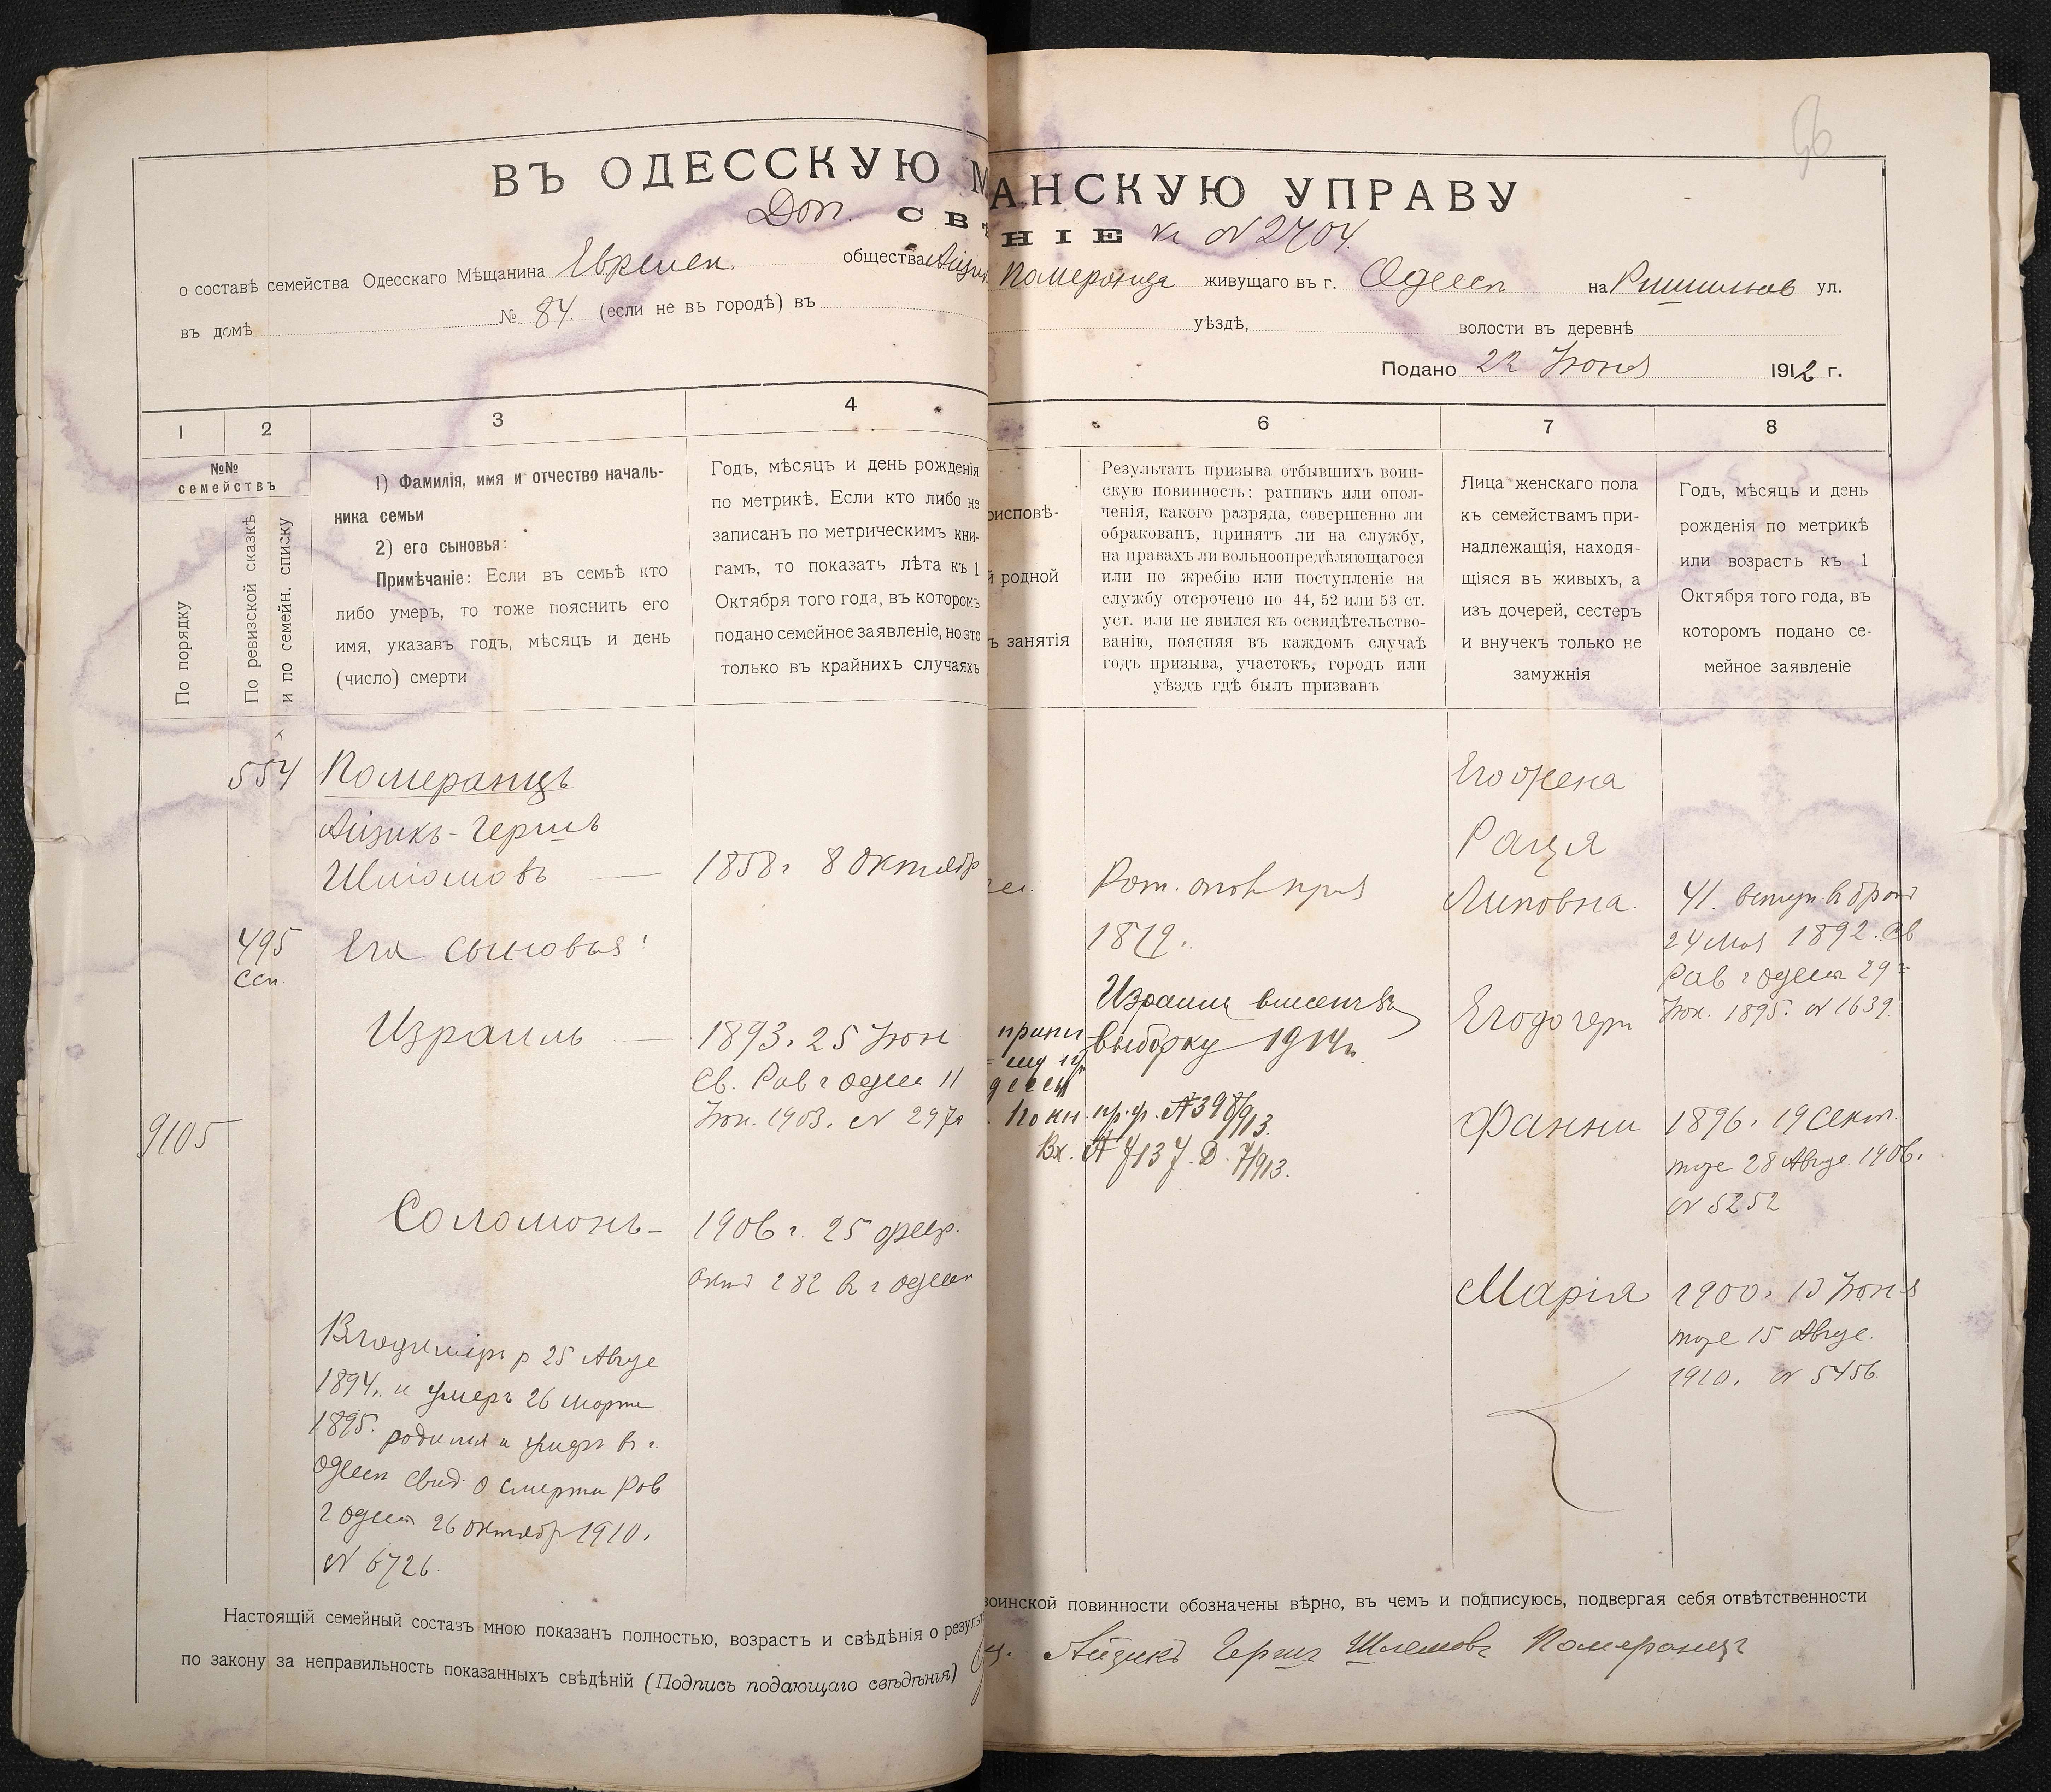 56
ВЪ ОДЕССКУЮ М АНСКУЮ УПРАВУ
Доп. СВѢ НІЕ къ N 2704.
о составѣ семейства Одесскаго Мѣщанина Евреиск. общества Айзик Померанца живущаго въ г. Одессѣ на Ришильев ул.
въ домѣ № 84. (если не въ городѣ) въ уѣздѣ, волости въ деревнѣ
Подано 22 Іюня 1912 г.
1 2 3 4 6 7 8
№№ семействъ
По порядку
По ревизской сказкѣ
и по семейн. списку
1) Фамилія, имя и отчество началь-
ника семьи
2) его сыновья:
Примѣчаніе: Если въ семьѣ кто
либо умеръ, то тоже пояснить его
имя, указавъ годъ, мѣсяцъ и день
(число) смерти
Годъ, мѣсяцъ и день рожденія
по метрикѣ. Если кто либо не
записанъ по метрическимъ кни-
гамъ, то показать лѣта къ 1
Октября того года, въ которомъ
подано семейное заявленіе, но это
только въ крайнихъ случаяхъ
рисповѣ-
й родной
ъ занятія
Результатъ призыва отбывшихъ воин-
скую повинность: ратникъ или опол-
ченія, какого разряда, совершенно ли
обракованъ, принятъ ли на службу,
на правахъ ли вольноопредѣляющагося
или по жребію или поступленіе на
службу отсрочено по 44, 52 или 53 ст.
уст. или не явился къ освидѣтельство-
ванію, поясняя въ каждомъ случаѣ
годъ призыва, участокъ, городъ или
уѣздъ гдѣ былъ призванъ
Лица женскаго пола
къ семействамъ при-
надлежащія, находя-
щіяся въ живыхъ, а
изъ дочерей, сестеръ
и внучекъ только не
замужнія
Годъ, мѣсяцъ и день
рожденія по метрикѣ
или возрастъ къ 1
Октября того года, въ
которомъ подано се-
мейное заявленіе
554
Померанцъ
Айзикъ-Гершъ
Шліомовъ — 1858 г 8 Октябр
495
ссп.
Его сыновья:
Израиль — 1893. 25 Іюн.
Св. Рав г Одесс 11
Іюн. 1903. N 2970
9105
Соломонъ - 1906 г. 25 февр.
акт 282 в г Одессѣ
Владиміръ р 25 Авгус
1894. и умеръ 26 Марта
1895. родился и умеръ въ г.
Одессѣ свид о смерти Рав
г Одессы 26 Октябр 1910.
N 6726.
Рат. опол приз
1879.
Израиль внесенъ въ
выборку 1914 г.
припи
По кн. пр. ф. № 398/913.
Вх. № 7137. Д. 7/913.
Его жена
Рація
Липовна.
41. вступ. в брак
24 Мая 1892. Св
Рав г Одесса 29
Іюн. 1895. N 1639.
Его дочери
Фанни 1896. 19 Сент.
тоже 28 Авгус 1906.
N 5252
Марія 1900. 13 Іюня
тоже 15 Авгус.
1910. N 5456.
Настоящій семейный составъ мною показанъ полностью, возрастъ и свѣдѣнія о результ воинской повинности обозначены вѣрно, въ чемъ и подписуюсь, подвергая себя отвѣтственности
по закону за неправильность показанныхъ свѣдѣній (Подпись подающаго свѣдѣнія) Айзикъ Гершъ Шлемовъ Померанцъ